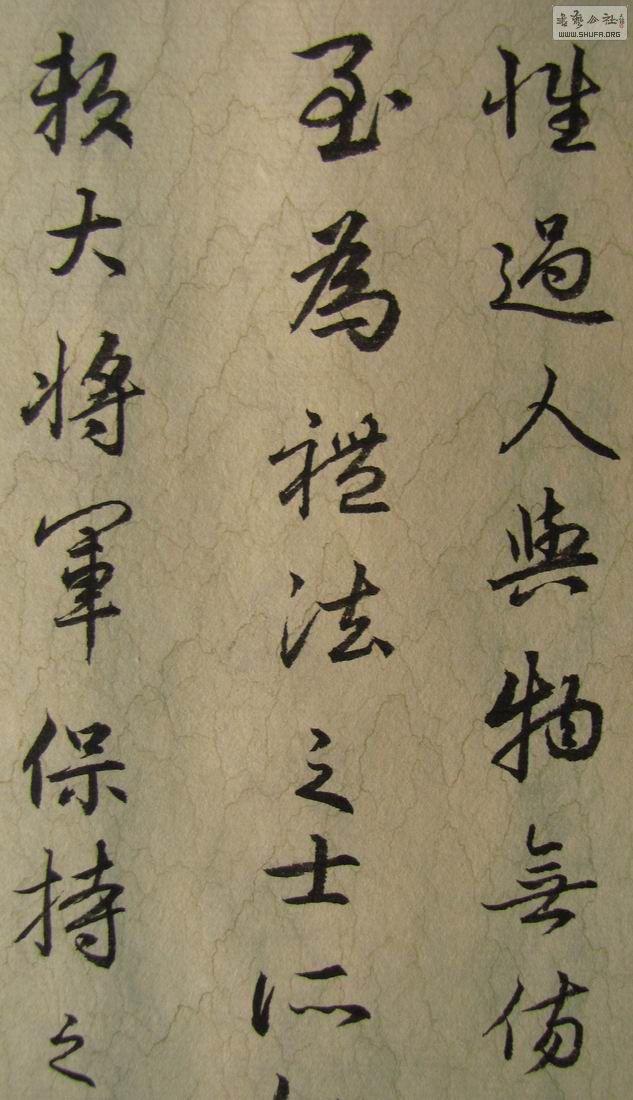 性過人與物無傷
至為禮法之士所
賴大將軍保持之
書藝公社
WWW.SHUFA.ORG